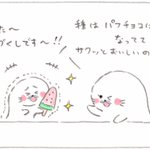 た〜
づくしです〜!!
種は パフチョコに
なってて
サクッとおいしいの